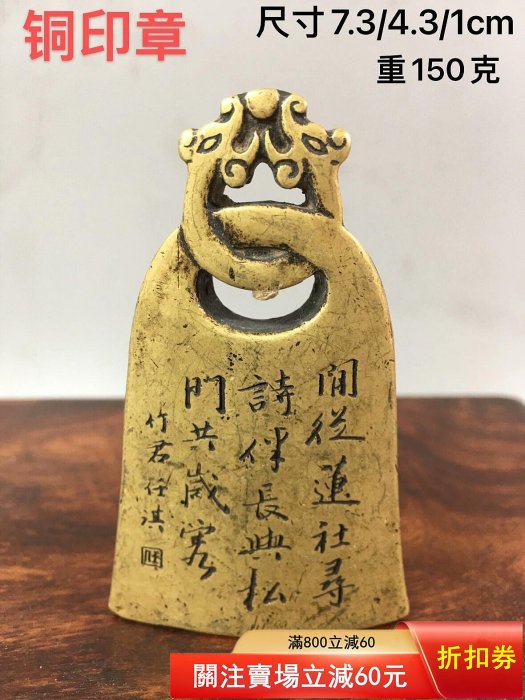 铜印章
尺寸7.3/4.3/1cm
重150克
閒從蓮社尋
詩伴長與松
門共歲寒
竹君任淇
滿800立減60
關注賣場立減60元
折扣券